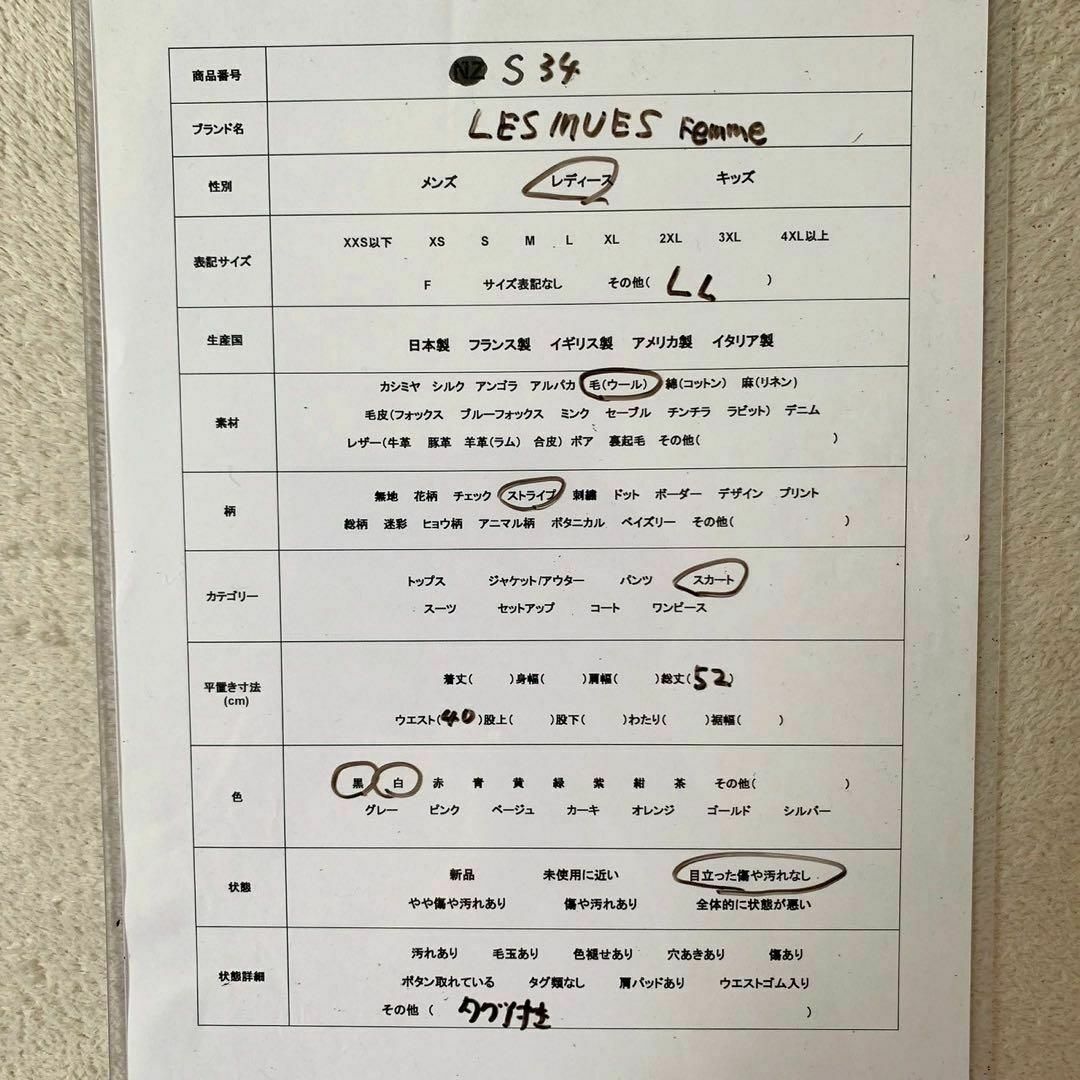 商品番号 NZ S 34
ブランド名 LES MUES Femme
性別 メンズ レディース キッズ
XXS以下 XS S M L XL 2XL 3XL 4XL以上
表記サイズ
F サイズ表記なし その他( LL )
生産国 日本製 フランス製 イギリス製 アメリカ製 イタリア製
カシミヤ シルク アンゴラ アルパカ 毛(ウール) 綿(コットン) 麻(リネン)
素材 毛皮(フォックス ブルーフォックス ミンク セーブル チンチラ ラビット) デニム
レザー(牛革 豚革 羊革(ラム) 合皮) ボア 裏起毛 その他( )
無地 花柄 チェック ストライプ 刺繍 ドット ボーダー デザイン プリント
柄
総柄 迷彩 ヒョウ柄 アニマル柄 ボタニカル ペイズリー その他( )
トップス ジャケット/アウター パンツ スカート
カテゴリー
スーツ セットアップ コート ワンピース
着丈( )身幅( )肩幅( )総丈(52)
平置き寸法
(cm)
ウエスト(40)股上( )股下( )わたり( )裾幅( )
黒 白 赤 青 黄 緑 紫 紺 茶 その他( )
色
グレー ピンク ベージュ カーキ オレンジ ゴールド シルバー
新品 未使用に近い 目立った傷や汚れなし
状態
やや傷や汚れあり 傷や汚れあり 全体的に状態が悪い
汚れあり 毛玉あり 色褪せあり 穴あきあり 傷あり
状態詳細 ボタン取れている タグ類なし 肩パッドあり ウエストゴム入り
その他 ( タグ付き )